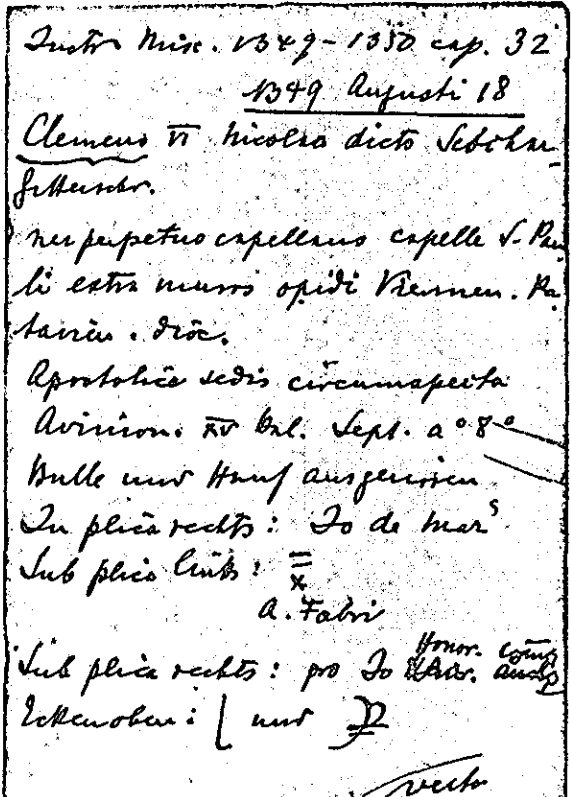 Instr. Misc. 1349-1350 cap. 32
1349 Augusti 18
Clemens VI Nicolao dicto
perpetuo capellano capelle S. Pau
li extra muros opidi Viennen. Pa
tavien. dioc.
Apostolice sedis circumspecta
Avinion. XV Kal. Sept. a° 8°
Bulle und Hanf ausgerissen
In plica rechts: Jo de Mar s
Sub plica links: = x
A. Fabri
Sub plica rechts: pro Jo Honor.
Ecken oben: und
verte